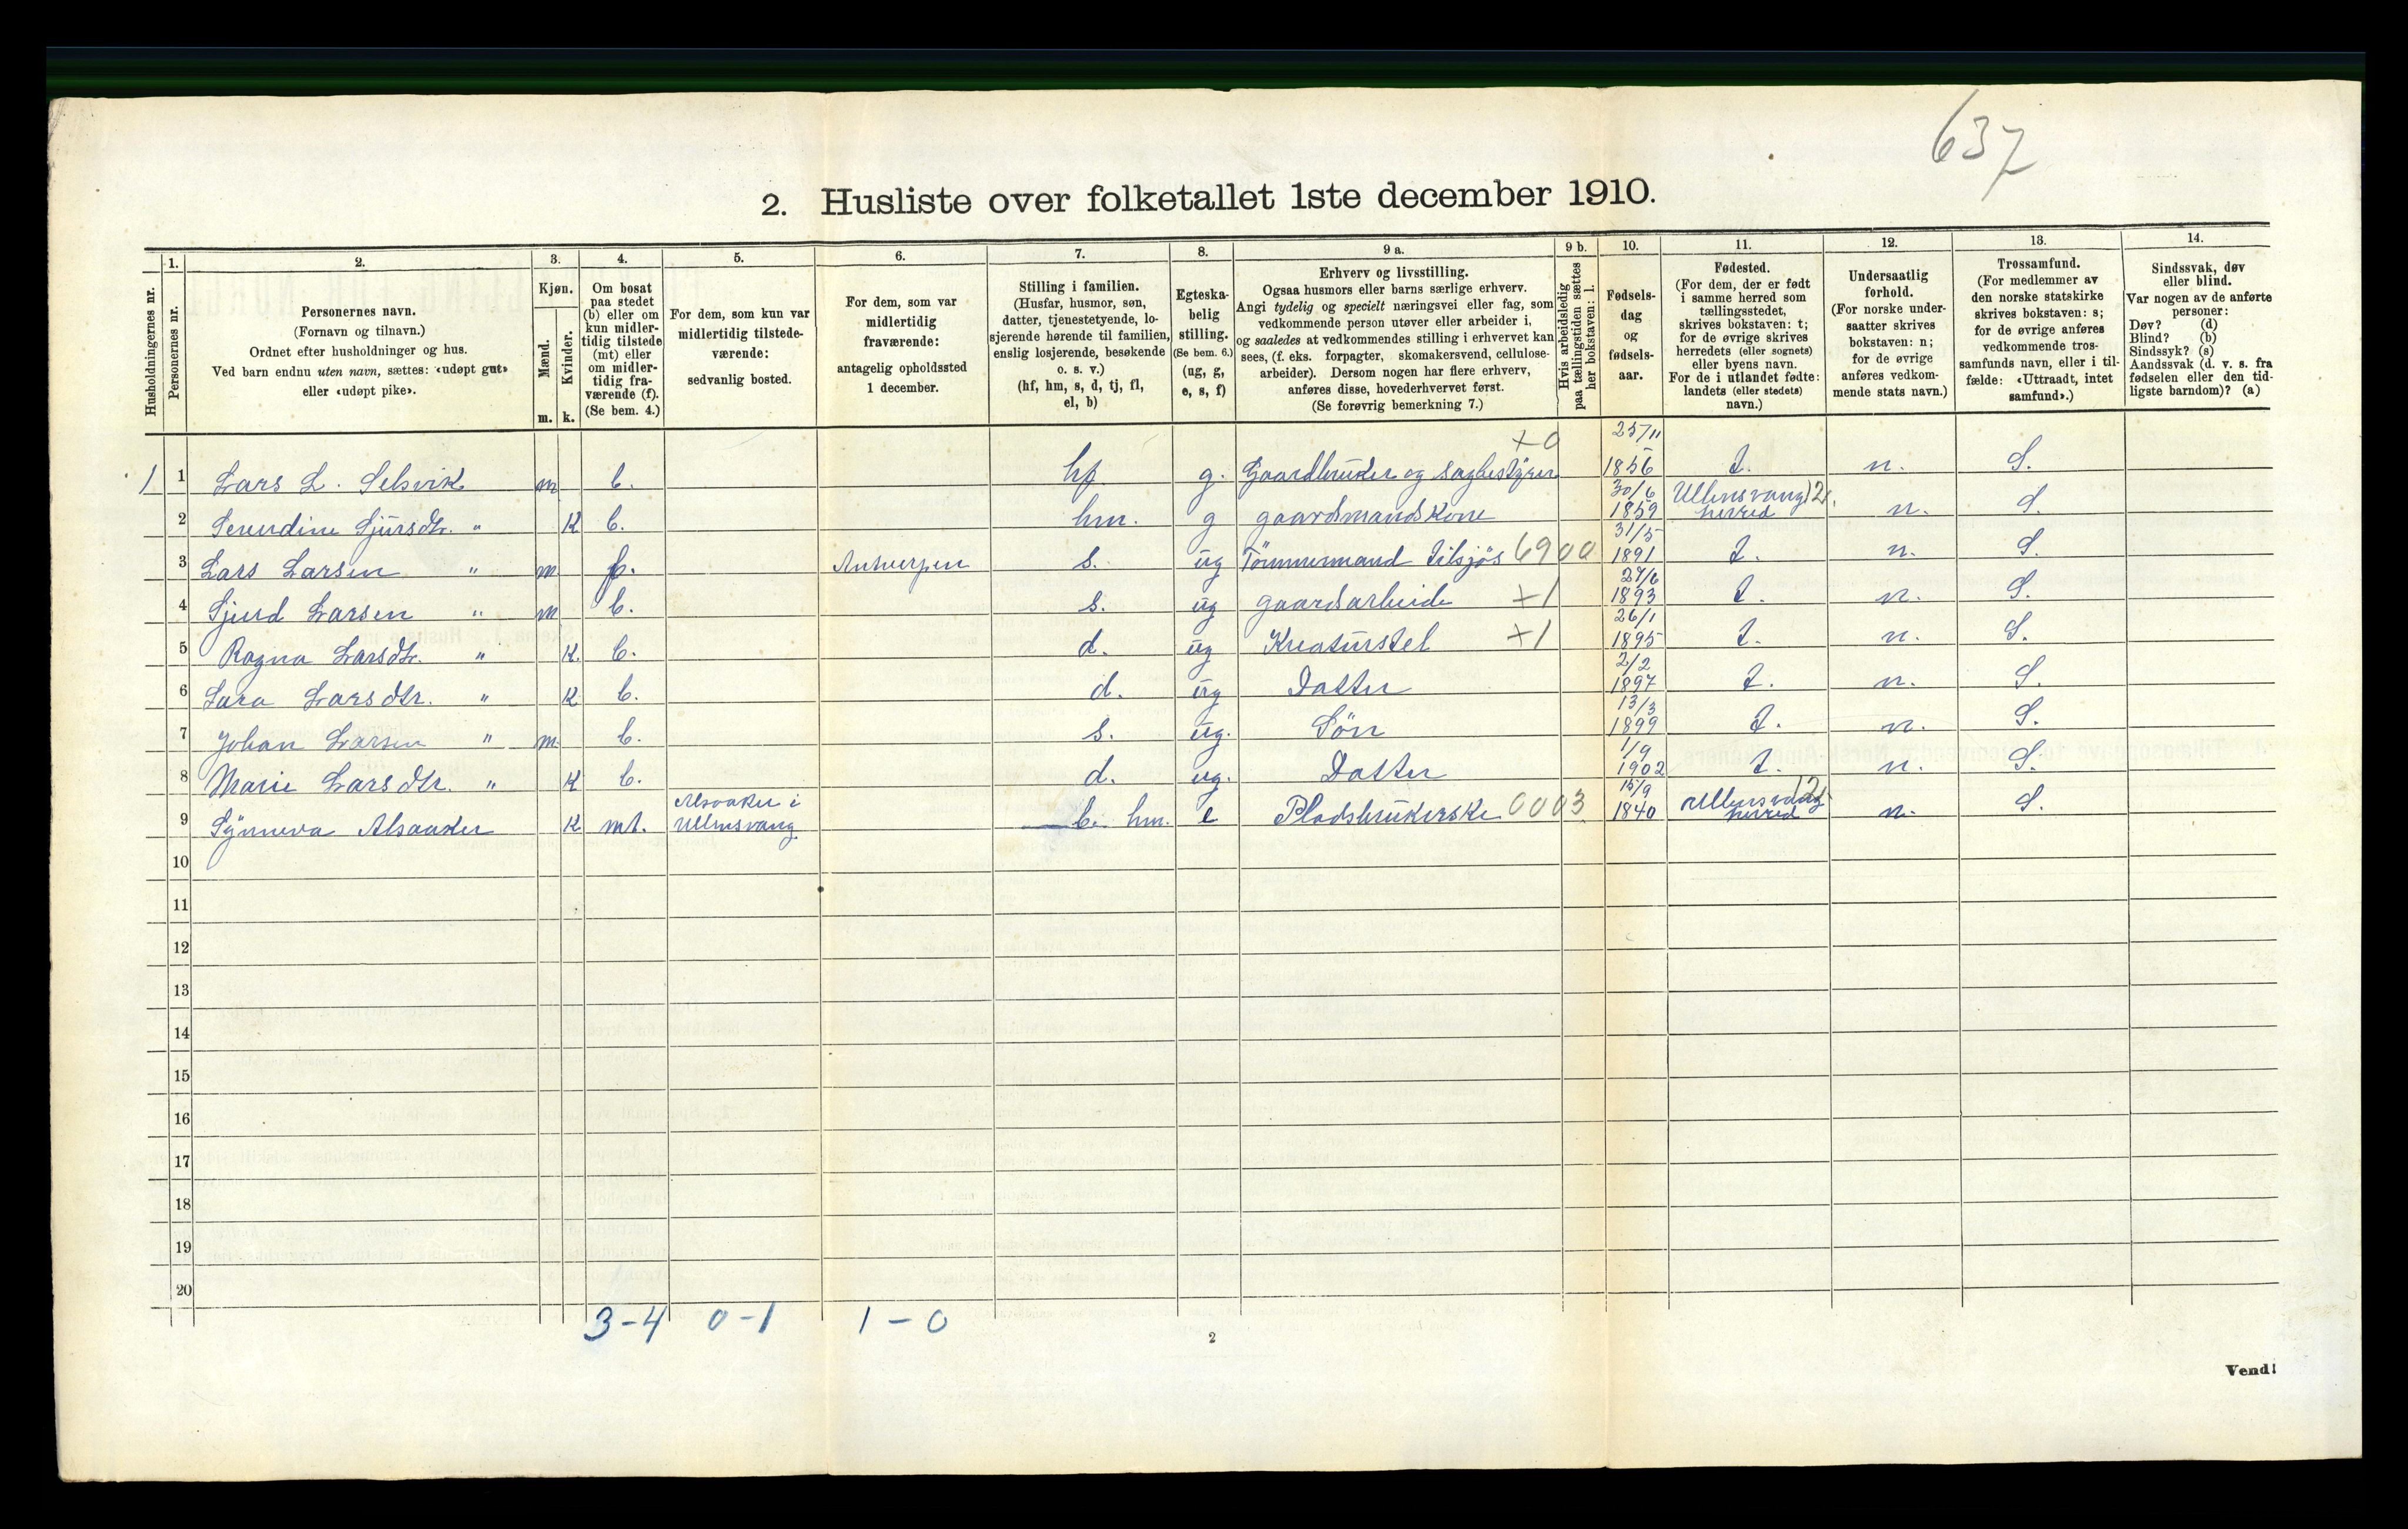 637
2. Husliste over folketallet 1ste december 1910.
Husholdningernes nr.
1.
Personernes nr.
2.
Personernes navn.
(Fornavn og tilnavn.)
Ordnet efter husholdninger og hus.
Ved barn endnu uten navn, sættes: «udøpt gut»
eller «udøpt pike».
3.
Kjøn.
Mænd.
Kvinder.
m. k.
4.
Om bosat
paa stedet
(b) eller om
kun midler-
tidig tilstede
(mt) eller
om midler-
tidig fra-
værende (f).
(Se bem. 4.)
5.
For dem, som kun var
midlertidig tilstede-
værende:
sedvanlig bosted.
6.
For dem, som var
midlertidig
fraværende:
antagelig opholdssted
1 december.
7.
Stilling i familien.
(Husfar, husmor, søn,
datter, tjenestetyende, lo-
sjerende hørende til familien,
enslig losjerende, besøkende
o. s. v.)
(hf, hm, s, d, tj, fl,
el, b)
8.
Egteska-
belig
stilling.
(Se bem. 6.)
(ug, g,
e, s, f)
9 a.
Erhverv og livsstilling.
Ogsaa husmors eller barns særlige erhverv.
Angi tydelig og specielt næringsvei eller fag, som
vedkommende person utøver eller arbeider i,
og saaledes at vedkommendes stilling i erhvervet kan
sees, (f. eks. forpagter, skomakersvend, cellulose-
arbeider). Dersom nogen har flere erhverv,
anføres disse, hovederhvervet først.
(Se forøvrig bemerkning 7.)
9 b.
Hvis arbeidsledig
paa tællingstiden sættes
her bokstaven: l.
10.
Fødsels-
dag
og
fødsels-
aar.
11.
Fødested.
(For dem, der er født
i samme herred som
tællingsstedet,
skrives bokstaven: t;
for de øvrige skrives
herredets (eller sognets)
eller byens navn.
For de i utlandet fødte:
landets (eller stedets)
navn.)
12.
Undersaatlig
forhold.
(For norske under-
saatter skrives
bokstaven: n;
for de øvrige
anføres vedkom-
mende stats navn.)
13.
Trossamfund.
(For medlemmer av
den norske statskirke
skrives bokstaven: s;
for de øvrige anføres
vedkommende tros-
samfunds navn, eller i til-
fælde: «Uttraadt, intet
samfund».)
14.
Sindssvak, døv
eller blind.
Var nogen av de anførte
personer:
Døv? (d)
Blind? (b)
Sindssyk? (s)
Aandssvak (d. v. s. fra
fødselen eller den tid-
ligste barndom)? (a)
1 1 Lars L. Selsvik m b. hf g. Gaardbruker og sagbestyrer +0 25/11 1856 t. n. S.
2 Serendine Sjursdtr. " K b. hm. g gaardmandskone 30/6 1859 Ullensvang herred 12 n. S.
3 Lars Larsen " m f. Antwerpen s. ug Tömmermand tilsjös 6900 31/5 1891 t. n. S.
4 Sjurd Larsen " m b. s. ug gaardsarbeide +1 27/6 1893 t. n. S.
5 Ragna Larsdtr. " K. b. d. ug Kreaturstel +1 26/1 1895 t. n. S.
6 Sara Larsdtr. " K b. d. ug Datter 2/2 1897 t. n. S.
7 Johan Larsen " m. b. s. ug. Sön 13/3 1899 t. n. S.
8 Marie Larsdtr. " K b. d. ug. Datter 1/9 1902 t. n. S.
9 Synneva Alsaaker K mt. Alsaaker i Ullensvang b. hm. e Pladsbrukerske 0003 15/9 1840 Ullensvang herred 12 n. S.
10
11
12
13
14
15
16
17
18
19
20
3-4 0-1 1-0
2
Vend!